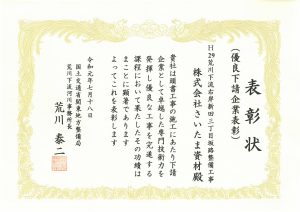 表彰状
(優良下請企業表彰)
H29荒川下流右岸新田三丁目坂路整備工事
株式会社さいたま資材殿
貴社は頭書工事の施工にあたり下請
企業として卓越した専門技術力を
発揮し優良な工事を完遂する
課程において果たしたその功績は
まことに顕著であります
よってこれを表彰します
令和元年七月十八日
国土交通省関東地方整備局
荒川下流河川事務所長
荒川泰二